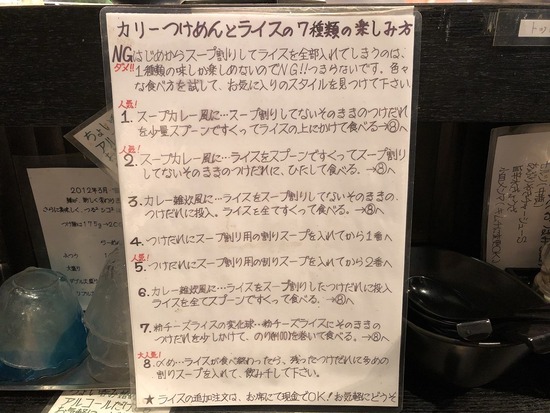 カリーつけめんとライスの7種類の楽しみ方
NG はじめからスープ割りしてライスを全部入れてしまうのは、
ダメ!! 1種類の味しか楽しめないのでNG!!つまらないです。色々
な食べ方を試して、お気に入りのスタイルを見つけて下さい
人気!
1. スープカレー風に…スープ割りしてないそのままのつけだれ
を少量スプーンですくってライスの上にかけて食べる→⑧へ
人気!
2. スープカレー風に…ライスをスプーンですくってスープ割り
してないそのままのつけだれに、ひたして食べる。→⑧へ
3. カレー雑炊風に…ライスをスープ割りしてないそのままの
つけだれに投入。ライスを全てすくって食べる。→⑧へ
4. つけだれにスープ割り用の割りスープを入れてから1番へ
人気!
5. つけだれにスープ割り用の割りスープを入れてから2番へ
6. カレー雑炊風に…ライスをスープ割りしたつけだれに投入
ライスを全てスプーンですくって食べる。→⑧へ
7. 粉チーズライスの変化球…粉チーズライスにそのままの
つけだれを少しかけて、のり(100)を巻いて食べる。→⑧へ
大人気!
8. 〆め…ライスが食べ終わったら、残ったつけだれに多めの
割りスープを入れて、飲み干して下さい。
★ ライスの追加注文は、お席にて現金でOK!お気軽にどうぞ
2012年3月